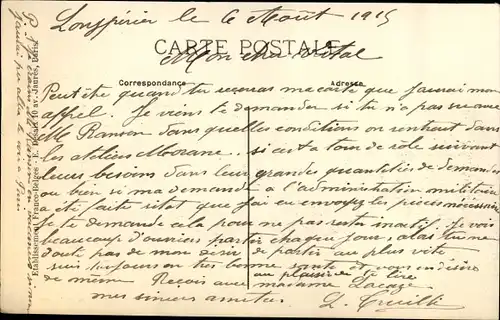 Longpérier le 6 Août 1915
CARTE POSTALE
Mon cher Vital
Correspondance Adresse
Peut être quand tu recevras ma carte que j'aurai mon
appel Je viens te demander si tu n'a pas su avec
M Ranson dans quelles conditions on rentrait dans
les ateliers Morane si cest a tour de role suivant
leurs besoins dans leur grandes quantités de demandes
ou bien si ma demande a l'administration militaire
a été faite sitot que j'ai eu envoyez les pièces nécessaires
Je te demande cela pour ne pas rester inactif Je vois
beaucoup d'ouvriers partir chaque jour, alas tu ne
doute pas de mon désir de partir au plus vite
suis toujours en très bonne santé et vous en désire
de même au plaisir de te lire
Reçois avec madame Lacaze
mes sincères amitiés
Etablissement France-Belges - E. Désaix 10 av. Jaurès, Paris